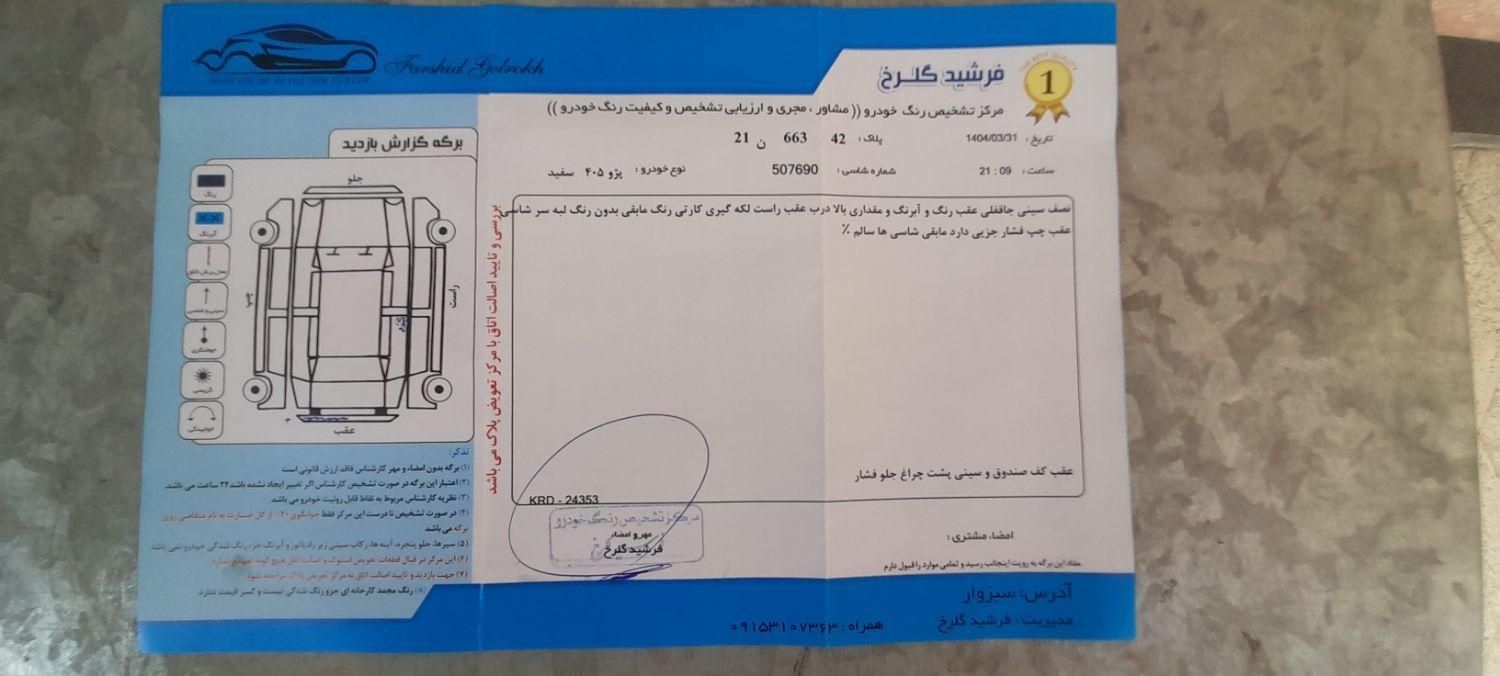 AUTO COLOR DETECTION CENTER
Farshid Golrokh
فرشید گلرخ
THE BEST QUALITY
1
مرکز تشخیص رنگ خودرو (( مشاور ، مجری و ارزیابی تشخیص و کیفیت رنگ خودرو ))
تاریخ : 1404/03/31
پلاک : 42 663 ن 21
ساعت : 21 : 09
شماره شاسی : 507690
نوع خودرو : پژو ۴۰۵ سفید
نصف سینی جاقفلی عقب رنگ و آبرنگ و مقداری بالا درب عقب راست لکه گیری کارتی رنگ مابقی بدون رنگ لبه سر شاسی
عقب چپ فشار جزیی دارد مابقی شاسی ها سالم ٪
عقب کف صندوق و سینی پشت چراغ جلو فشار
KRD - 24353
مرکز تشخیص رنگ خودرو
مهر و امضاء
فرشید گلرخ
امضاء مشتری :
مفاد این برگه به رویت اینجانب رسید و تمامی موارد را قبول دارم
بررسی و تایید اصالت اتاق با مرکز تعویض پلاک می باشد
برگه گزارش بازدید
رنگ
آبرنگ
محل برش اتاق
سینی و شاسی
جوشکاری
خوابیدگی
جلو
راست
چپ
عقب
تذکر:
۱) برگه بدون امضاء و مهر کارشناس فاقد ارزش قانونی است
۲) اعتبار این برگه در صورت تشخیص کارشناس اگر تغییر ایجاد نشده باشد ۲۴ ساعت می باشد.
۳) نظریه کارشناس مربوط به نقاط قابل روئیت خودرو می باشد
۴) در صورت تشخیص نادرست این مرکز فقط جوابگوی ۲۰٪ از کل خسارت به نام متقاضی روی
برگه می باشد
۵) سپرها، جلو پنجره، آینه ها، رکاب سینی زیر رادیاتور و آبرنگ جزء رنگ شدگی خودرو نمی باشد.
۶) این مرکز در قبال قطعات تعویض استوک و اصالت اتاق هیچ گونه تعهدی ندارد
۷) جهت بازدید و تایید اصالت اتاق به مرکز تعویض پلاک مراجعه شود.
۸) رنگ مجمد کارخانه ای جزو رنگ شدگی نیست و کسر قیمت ندارد.
آدرس: سبزوار
مدیریت : فرشید گلرخ
همراه : ۰۹۱۵۳۱۰۷۳۶۳